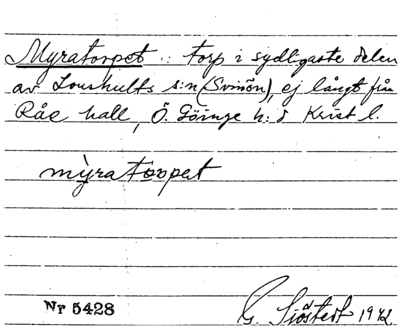 Myratorpet : torp i sydligaste delen
av Loushults s:n (Svinön), ej långt från
Råe hall, Ö. Göinge h:d Krist l.
mỳratorpet
Nr 5428
G. Sjöstedt 1942